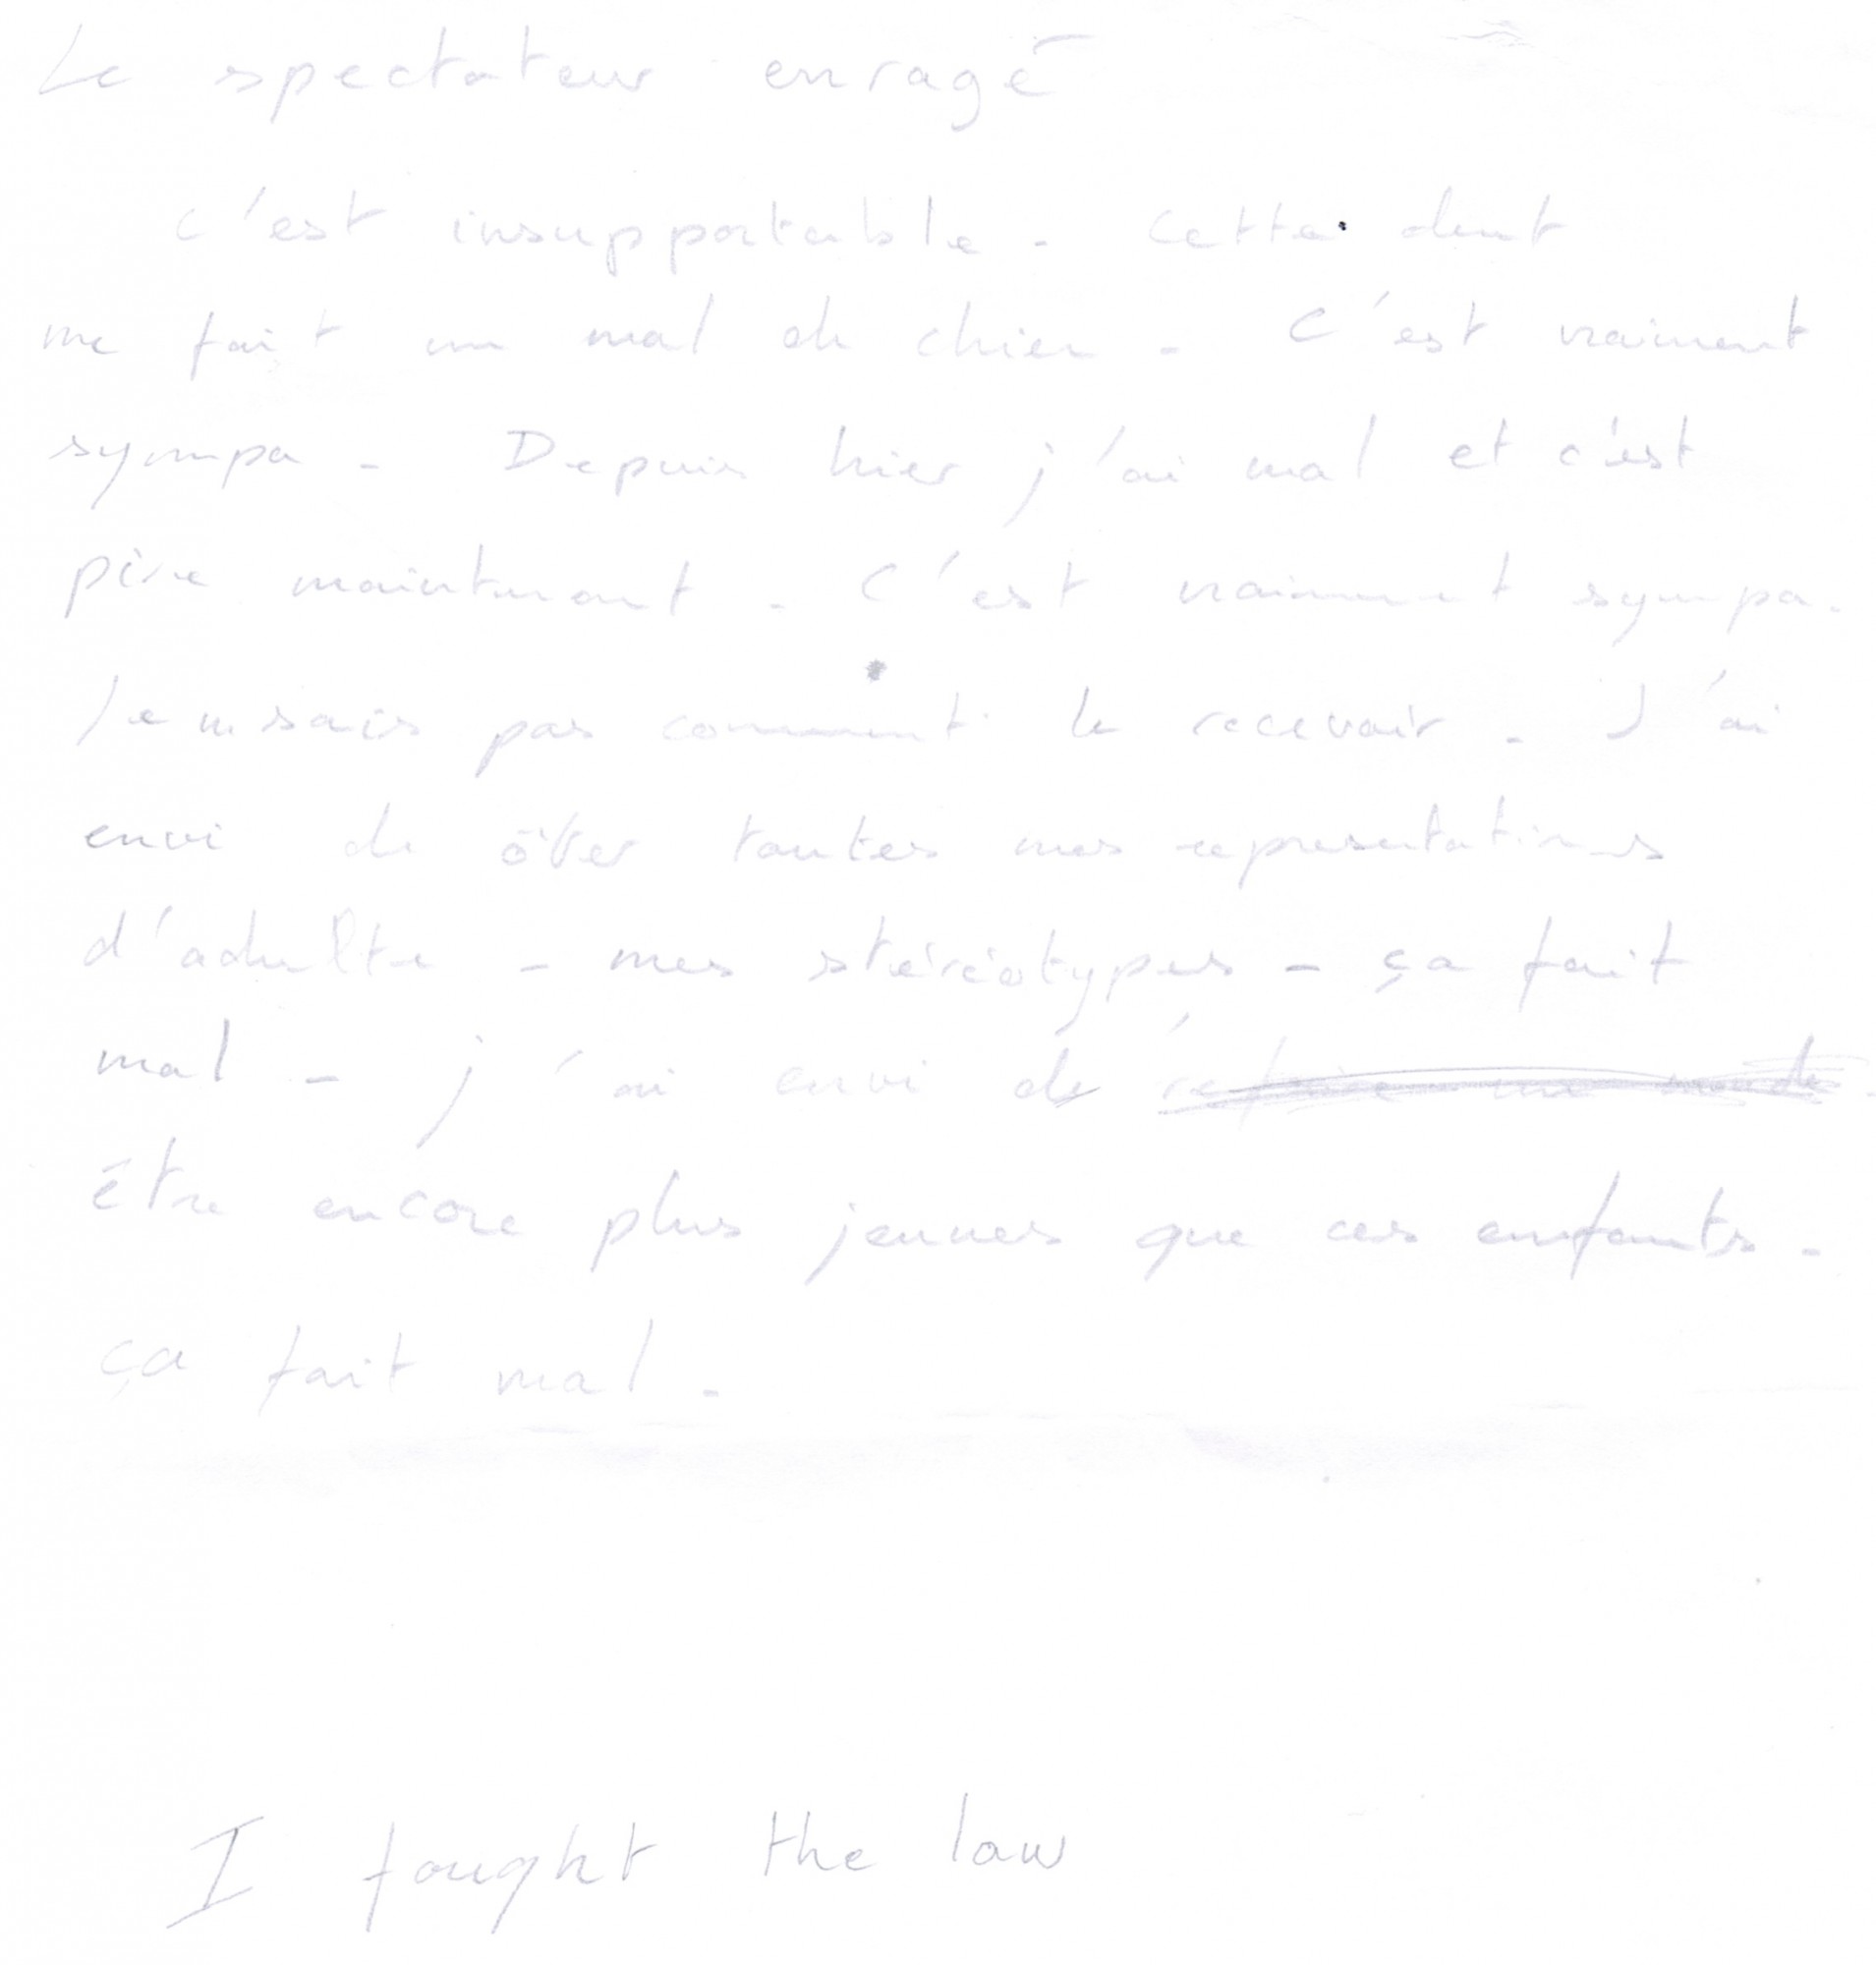 Le spectateur enragé
C'est insupportable. Cette dent
me fait un mal de chien. C'est vraiment
sympa. Depuis hier j'ai mal et c'est
pire maintenant. C'est vraiment sympa.
Je ne sais pas comment le recevoir. J'ai
envi de ôter toutes mes representations
d'adulte - mes stéréotypes - ça fait
mal - j'ai envi de
être encore plus jeunes que ces enfants.
ça fait mal.
I fought the law